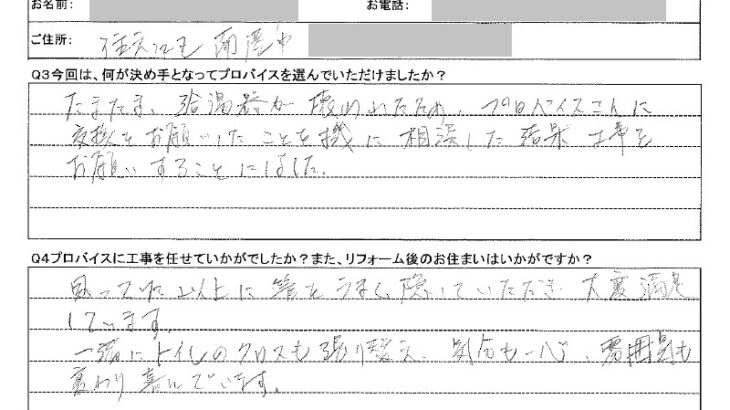 お名前： お電話：
ご住所：
Q3今回は、何が決め手となってプロバイスを選んでいただけましたか？
たまたま、給湯器が壊われたため、プロバイスさんに
交換をお願いしたことを機に相談した結果工事を
お願いすることにしました。
Q4プロバイスに工事を任せていかがでしたか？また、リフォーム後のお住まいはいかがですか？
思っていた以上に管をうまく隠していただき大変満足
しています。
一緒にトイレのクロスも張り替え、気分も一心、雰囲気も
変わり喜んでいます。